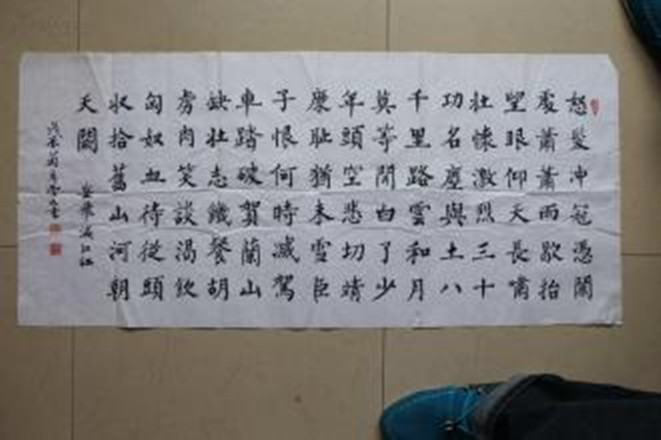 怒髮冲冠憑闌
處蕭蕭雨歇抬
望眼仰天長嘯
壯懷激烈三十
功名塵與土八
千里路雲和月
莫等閒白了少
年頭空悲切靖
康耻猶未雪臣
子恨何時滅駕
車踏破賀蘭山
缺壯志饑餐胡
虜肉笑談渴飲
匈奴血待從頭
收拾舊山河朝
天闕
岳飛滿江紅